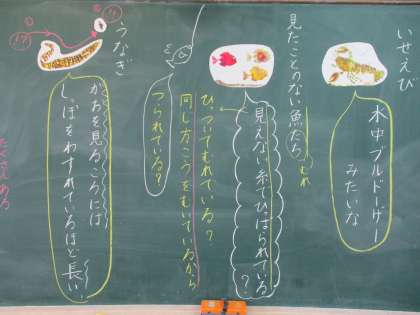 いせえび
水中ブルドーザー
みたいな
見たことのない魚たち
むれ
見えない糸でひっぱられている
？
ひっついてむれている？
同じ方こうをむいているから
つられている？
うなぎ
かおを見るころには
しっぽをわすれているほど長い！
たくさんある